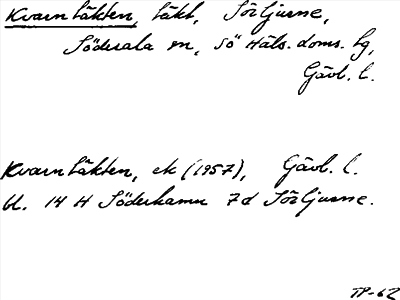 Kvarntäkten, täkt, Sörljusne,
Söderala sn, Sö Häls. doms. hg,
Gävl. l.
Kvarntäkten, ek (1957), Gävl. l.
bl. 14 H Söderhamn 7d Sörljusne.
TP-62